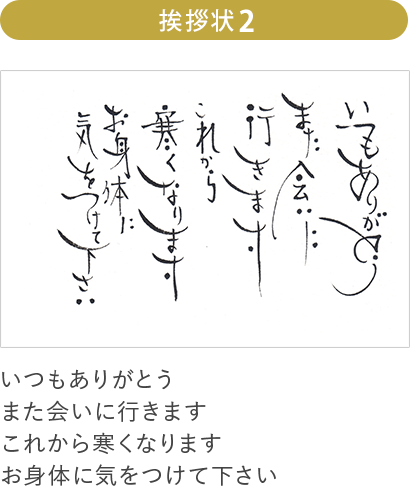 挨拶状2
いつもありがとう
また会いに
行きます
これから
寒くなります
お身体に
気をつけて下さい
いつもありがとう
また会いに行きます
これから寒くなります
お身体に気をつけて下さい